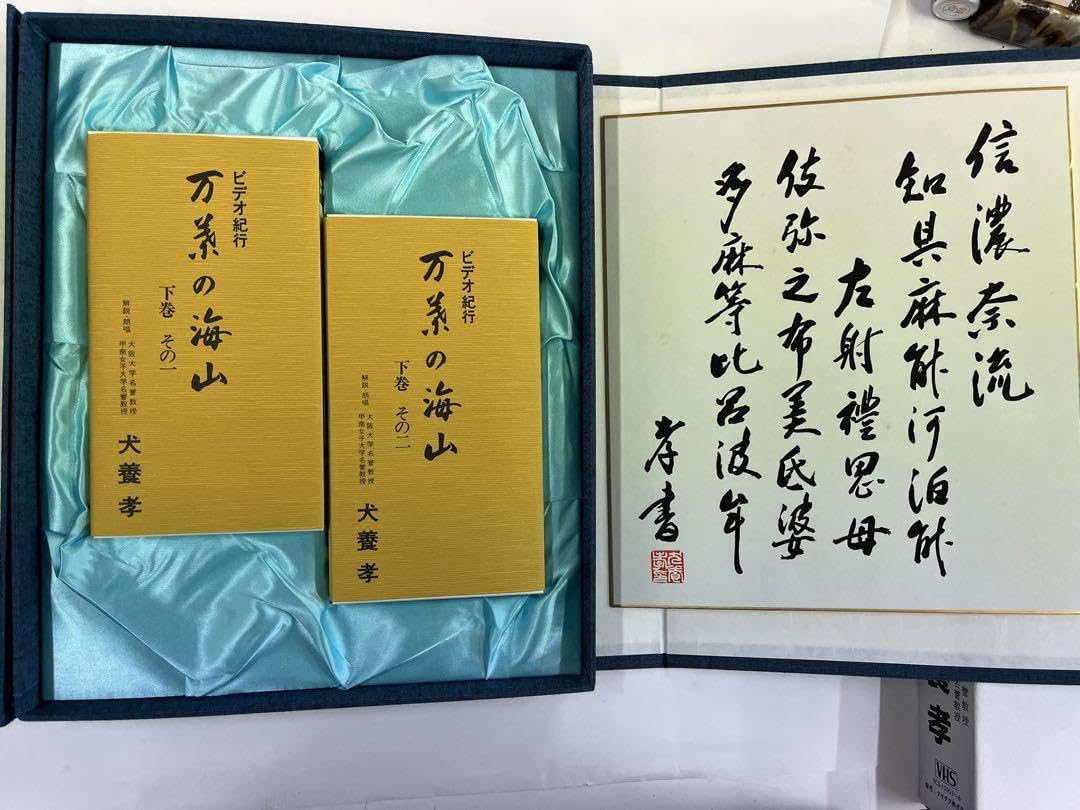 ビデオ紀行
万葉の海山
下巻 その一
解説・朗唱
大阪大学名誉教授
甲南女子大学名誉教授
犬養孝
ビデオ紀行
万葉の海山
下巻 その二
解説・朗唱
大阪大学名誉教授
甲南女子大学名誉教授
犬養孝
信濃奈流
知具麻能河泊能
左射禮思母
伎弥之布美氐婆
多麻等比呂波牟
孝書
誉教授
名誉教授
孝
VHS